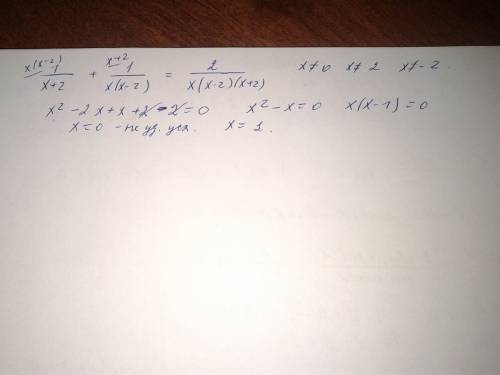 x(x-2) 1/(x+2) + x+2 1/(x(x-2)) = 2/(x(x-2)(x+2)) x≠0 x≠2 x≠-2.
x² - 2x + x + 2 - 2 = 0 x² - x = 0 x(x-1) = 0
x=0 - не уд. усл. x = 1.